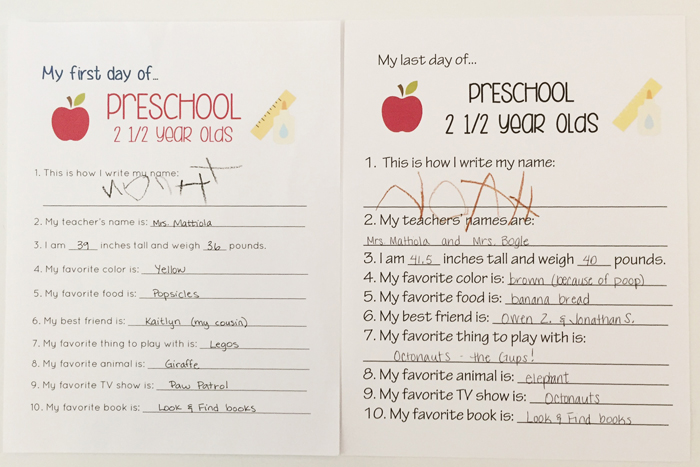 My first day of...
PRESCHOOL
2 1/2 year olds
1. This is how I write my name:
NOAH
2. My teacher's name is: Mrs. Mattiola
3. I am 39 inches tall and weigh 36 pounds.
4. My favorite color is: Yellow
5. My favorite food is: Popsicles
6. My best friend is: Kaitlyn (my cousin)
7. My favorite thing to play with is: Legos
8. My favorite animal is: Giraffe
9. My favorite TV show is: Paw Patrol
10. My favorite book is: Look & Find books
My last day of...
PRESCHOOL
2 1/2 year olds
1. This is how I write my name:
NOAH
2. My teachers' names are:
Mrs. Mattiola and Mrs. Bogle
3. I am 41.5 inches tall and weigh 40 pounds.
4. My favorite color is: brown (because of poop)
5. My favorite food is: banana bread
6. My best friend is: Owen Z. & Jonathan S.
7. My favorite thing to play with is:
Octonauts - the Gups!
8. My favorite animal is: elephant
9. My favorite TV show is: Octonauts
10. My favorite book is: Look & Find books